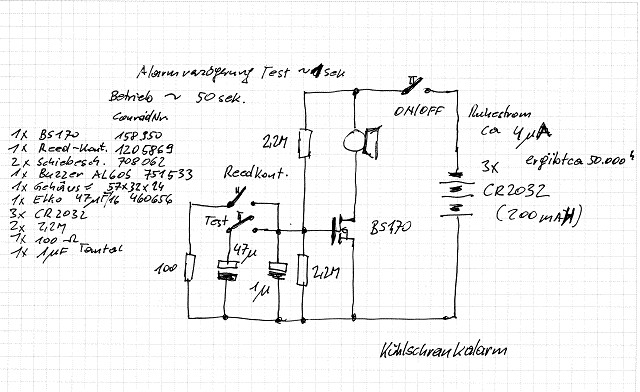 Alarmverzögerung Test ~ 1sek
Betrieb ~ 50 sek.
Conrad Nr
1x BS170 158950
1x Reed-Kont. 1205869
2x Schiebesch. 708062
1x Buzzer AL60S 751533
1x Gehäuse 57x32x24
1x Elko 47µF/16 460656
3x CR2032
2x 2,2M
1x 100 Ω
1x 1µF Tantal
ON/OFF
Ruhestrom
ca 4µA
ergibt ca 50.000 h
3x
CR2032
(200mAH)
2,2M
Reedkont.
Test
BS170
47µ
100
1µ
2,2M
Kühlschrankalarm